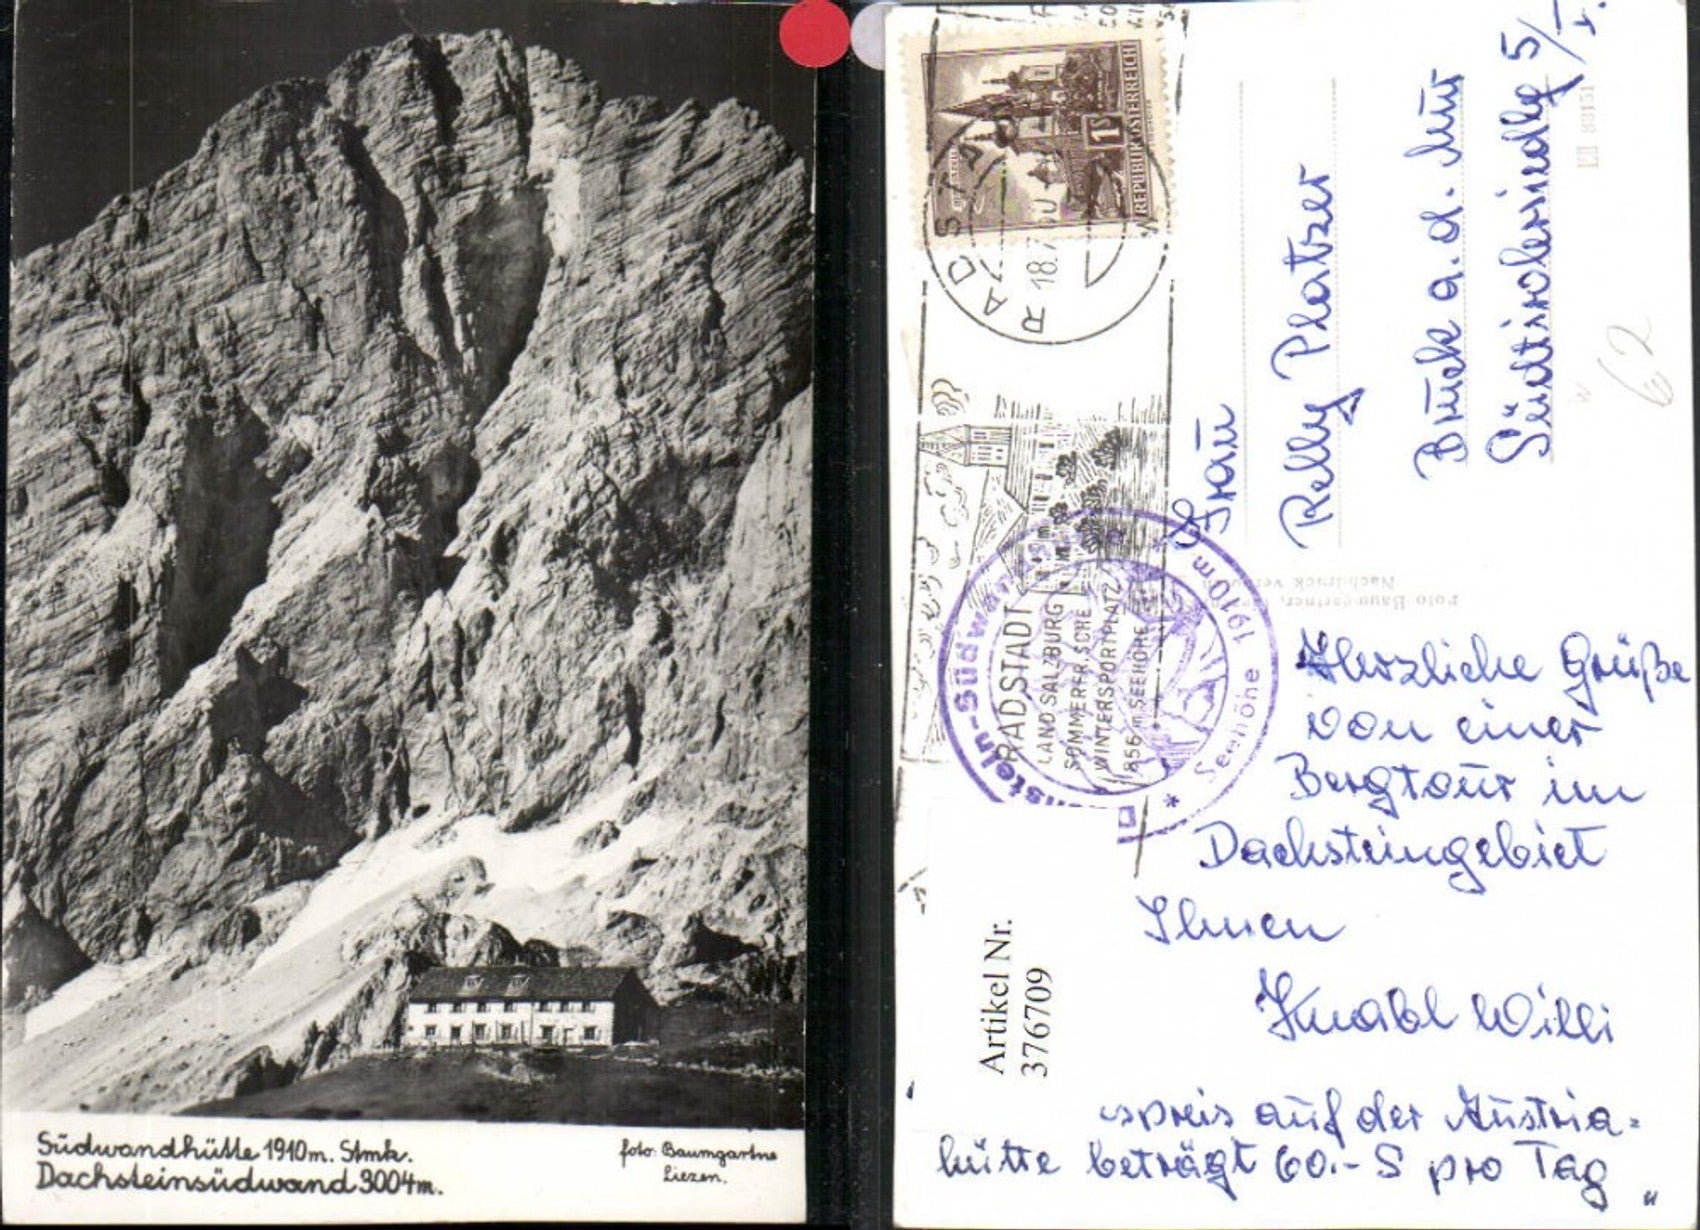 Südwandhütte 1910m. Stmk.
Dachsteinsüdwand 3004m.
foto: Baumgartner
Liezen.
REPUBLIK ÖSTERREICH
1S
RADSTA
18.7
RADSTADT
LAND SALZBURG
SOMMERFRISCHE
WINTERSPORTPLATZ
856 m SEEHÖHE
Seehöhe 1910m
Frau
Relly Platzer
Brück a. d. Mur
Südtirolersiedlg 5/I.
62
Foto Baumgartner,
Herzliche Grüße
von einer
Bergtour im
Dachsteingebiet
Ihnen
Knabl Willi
preis auf der Austria-
hütte beträgt 60.- S pro Tag
Artikel Nr.
376709